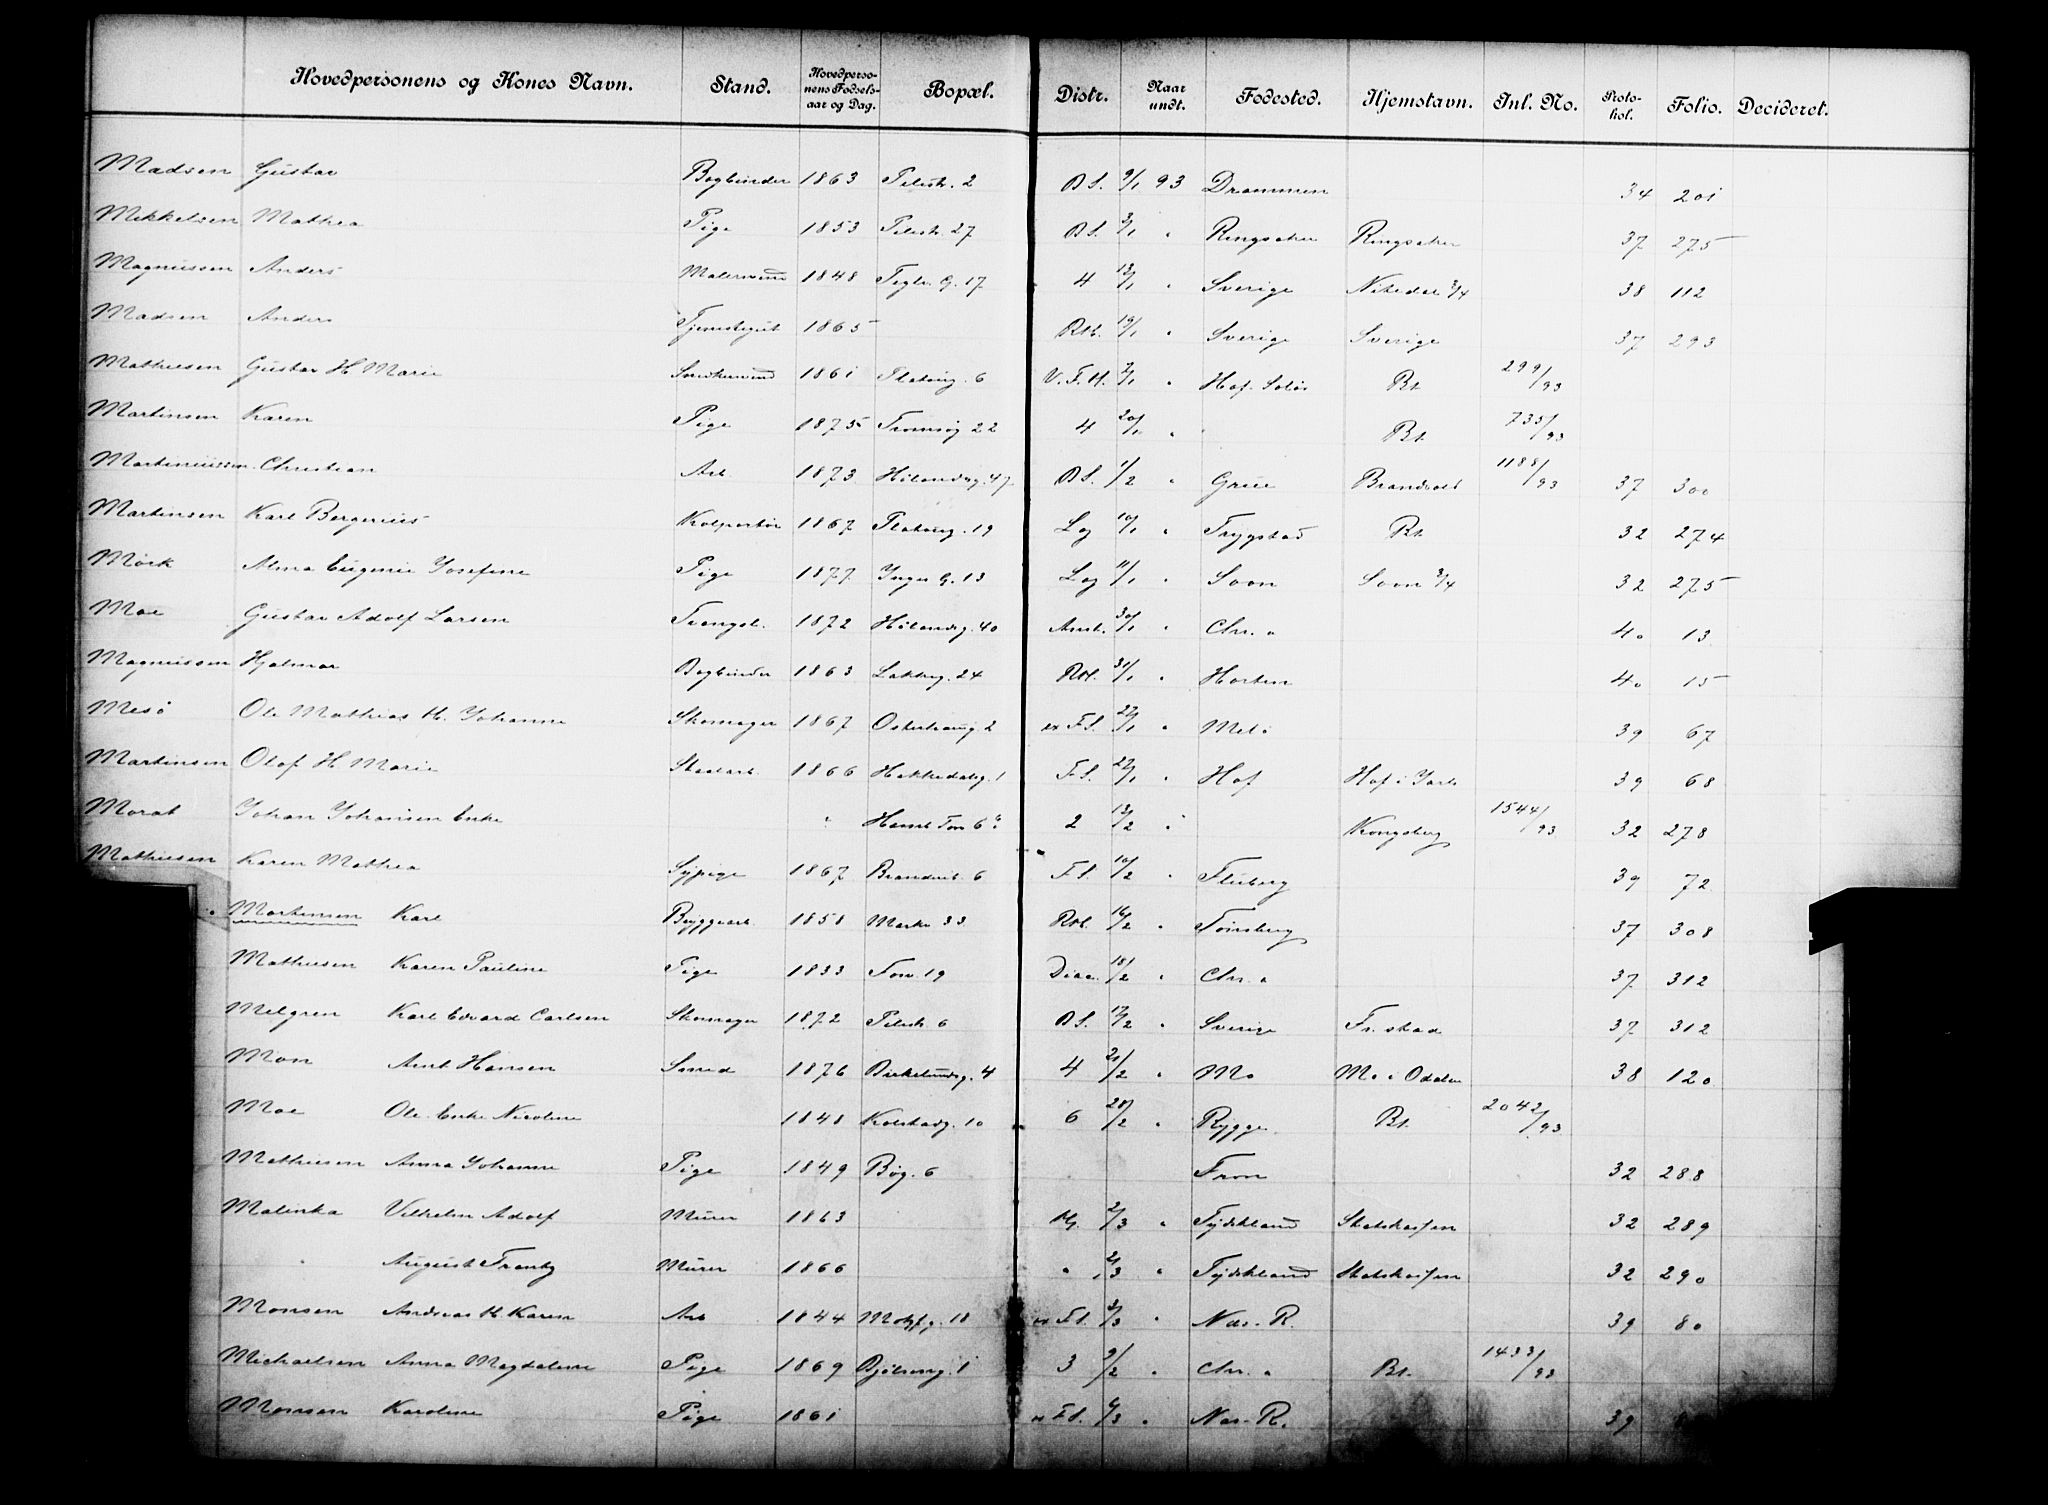 Hovedpersonens og Kones Navn. Stand. Hovedpersonens Fødselsaar og Dag. Bopæl. Distr. Naar undt. Fødested. Hjemstavn. Inl. No. Protokol. Folio. Decideret.
Madsen Gustav Bogbinder 1863 Pilestr. 2 B S. 9/1 93 Drammen 34 201
Mikkelsen Mathea Pige 1853 Pilestr. 27 B S. 3/1 " Ringsaker Ringsaker 37 275
Magnussen Anders Malersvend 1848 Teglv. G. 17 4 13/1 " Sverige Nitedal 3/4 38 112
Madsen Anders Tjenestegut 1865 Rth. 19/1 " Sverige Sverige 37 293
Mathiesen Gustav H. Marie 1861 Platoug. 6 V. F. H. 2/1 " Hof. Solør Bt. 299/93
Martinsen Karen Pige 1875 Tromsøg 22 4 20/1 " Bt. 735/93
Martiniussen Christian Arb. 1873 Hølandsg. 47 B S. 1/2 " Grue Brandvold 1188/93 37 300
Martinsen Karl Bergerius Kolportør 1867 Platoug. 19 Log 10/1 " Trygstad Bt. 32 274
Mörk Alma Eugenie Josefine Pige 1877 Inger G. 13 Log 11/1 " Soon Soon 3/4 32 275
Moe Gustav Adolf Larsen 1872 Hølandsg. 40 Amt. 30/1 " Chr.a 40 13
Magnussen Hjalmar Bogbinder 1863 Lakkeg. 24 Rth. 31/1 " Horten 40 15
Mesö Ole Mathias H. Johanne Skomager 1867 Osterhausg. 2 F S. 27/1 " 39 67
Martinsen Olaf H. Marie 1866 Hakkedalsg. 1 F S. 27/1 " Hof Hof i Jarls 39 68
Morat Johan Johansen Enke " 2 13/2 " Kongsberg 1544/93 32 278
Mathiesen Karen Mathea Sypige 1867 6 F S. 10/2 " Fluberg 39 72
Martinsen Karl Bryggearb. 1858 Markv. 33 Rth. 16/2 " Tönsberg 37 308
Mathiesen Karen Pauline Pige 1833 19 Diac. 18/2 " Chr.a 37 312
Melgren Karl Edvard Carlsen Skomager 1872 Pilestr. 6 B S. 17/2 " Sverige Fr.stad 37 312
Mon Arnt Hansen Smed 1876 Birkelundsg. 4 4 21/2 " Mo Mo i Odalen 38 120
Moe Ole. Enke Nicoline 1848 Kolstadg. 10 6 28/2 " Rygge Bt. 2042/93
Mathiesen Anna Johanne Pige 1849 Bøg. 6 Fron 32 288
Malinka Vilhelm Adolf Murer 1863 2/3 " Tydskland Statskassen 32 289
" August Frantz Murer 1866 " 2/3 " Tydskland Statskassen 32 290
Monsen Andreas H. Karen Arb 1844 Motzf.g. 18 F S. 3/3 " Næs. R. 39 80
Michaelsen Anna Magdalene Pige 1869 Bjölseng. 1 3 9/2 " Chr.a Bt. 1433/93
Monsen Karoline Pige 1861 F S. 6/3 " Næs. R. 39